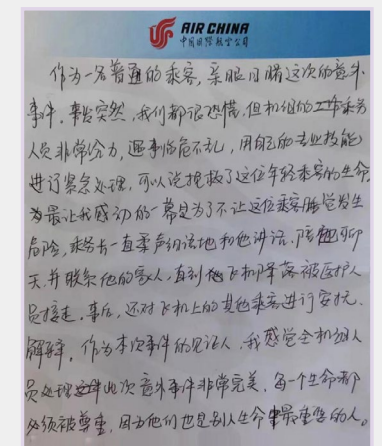 AIR CHINA
中国国际航空公司
作为一名普通的乘客,亲眼目睹这次的意外
事件,事发突然,我们都很恐慌,但机组的工作乘务
人员非常给力,遇事临危不乱,用自己的专业技能
进行紧急处理,可以说拯救了这位年轻乘客的生命,
为最让我感动的一幕是为了不让这位乘客睡觉发生
危险,乘务长一直柔声细语地和他讲话,陪他聊
天,并联系他的家人,直到他飞机降落被医护人
员接走,事后,还对飞机上的其他乘客进行安抚、
解释,作为本次事件的见证人,我感觉全机组人
员处理这件此次意外事件非常完美,每一个生命都
必须被尊重,因为他们也是别人生命中最重要的人。